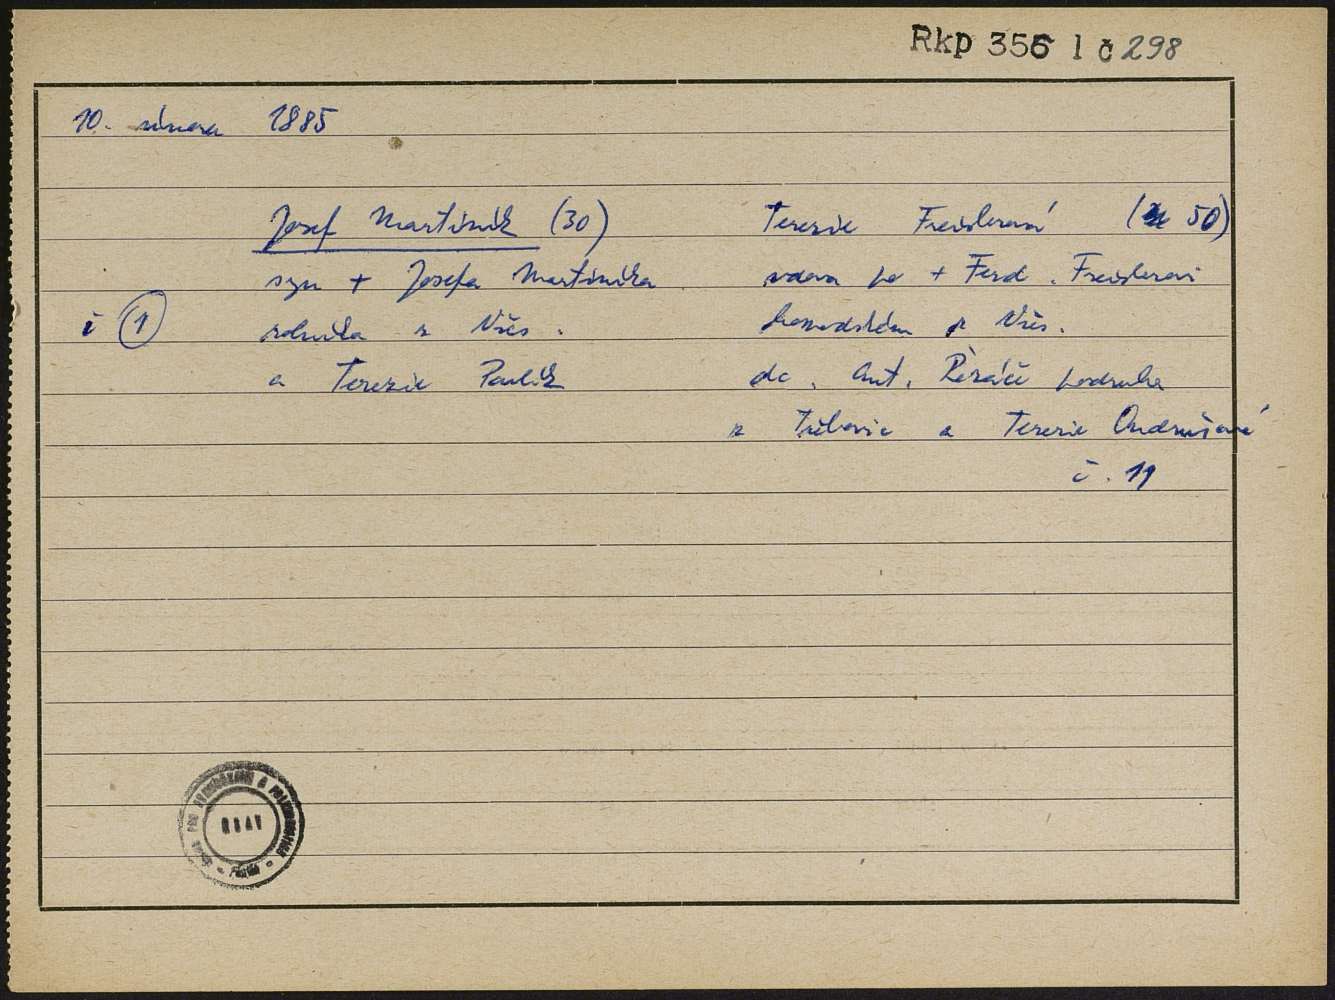 Rkp 356 1 č 298
10. února 1885
Josef Martinik (30)
syn + Josefa Martinika
č 1 rolnika z Všes.
a Terezie Paulik
Terezie Freislerová (50)
vdova po + Ferd. Freislerovi
z Všes.
dc. Ant. Řezáče podruha
z Třebovic a Terezie Ondrušové
č. 19